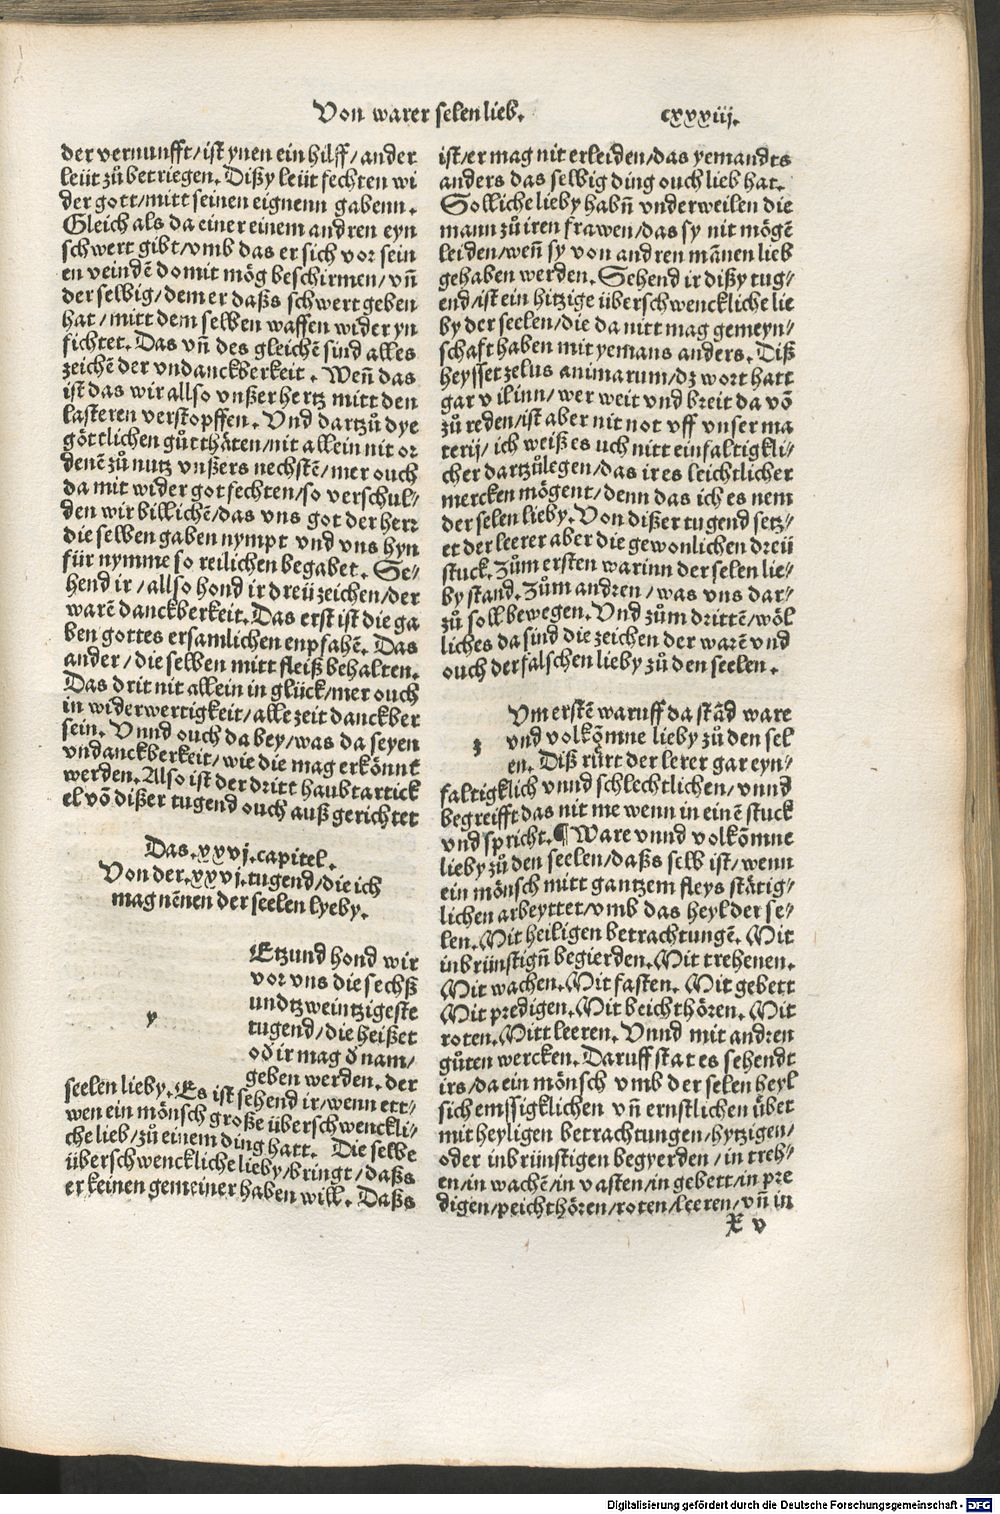 Von warer selen lieb. cxxxiij.
der vernunfft/ist ynen ein hilff/ander
leüt zů betriegen. Dißy leüt fechten wi
der gott/mitt seinen eignenn gabenn.
Gleich als da einer einem andren eyn
schwert gibt/vmb das er sich vor sein
en veindē domit mög beschirmen/vñ
der selbig/dem er daßs schwert geben
hat/mitt dem selben waffen wider yn
fichtet. Das vñ des gleichē sind alles
zeichē der vndanckberkeit. Weñ das
ist das wir allso vnßer hertz mitt den
lasteren verstopffen. Vnd dartzů dye
göttlichen gůtthäten/nit allein nit or
denē zů nutz vnßers nechstē/mer ouch
da mit wider got fechten/so verschul⸗
den wir billichē/das vns got der herr
die selben gaben nympt vnd vns hyn
für nymme so reilichen begabet. Se⸗
hend ir/allso hond ir dreü zeichen/der
warē danckberkeit. Das erst ist die ga
ben gottes ersamlichen enpfahē. Das
ander/die selben mitt fleiß behalten.
Das drit nit allein in glück/mer ouch
in widerwertigkeit/alle zeit danckber
sein. Vnnd ouch da bey/was da seyen
vndanckberkeit/wie die mag erkönnt
werden. Also ist der dritt haubtartick
el vō dißer tugend ouch auß gerichtet
Das .xxvj. capitel.
Von der .xxvj. tugend/die ich
mag nēnen der seelen lyeby.
y
Etzund hond wir
vor vns die sechß
undtzweintzigeste
tugend/die heißet
oď ir mag ď nam/
geben werden. der
seelen lieby. Es ist sehend ir/wenn ett⸗
wen ein mönsch große überschwenckli⸗
che lieb/zů einem ding hatt. Die selbe
überschwenckliche lieby/bringt/daßs
er keinen gemeiner haben will. Daßs
ist/er mag nit erleiden/das yemandts
anders das selbig ding ouch lieb hat.
Solliche lieby habñ vnderweilen die
mann zů iren frawen/das sy nit mögē
leiden/weñ sy von andren mānen lieb
gehaben werden. Sehend ir dißy tug⸗
end/ist ein hitzige überschwenckliche lie
by der seelen/die da nitt mag gemeyn⸗
schaft haben mit yemans anders. Diß
heysset zelus animarum/dz wort hatt
gar vil inn/wer weit vnd breit da vō
zů reden/ist aber nit not vff vnser ma
terij/ich weiß es uch nitt einfaltigkli⸗
cher dartzůlegen/das ir es leichtlicher
mercken mögent/denn das ich es nem
der selen lieby. Von dißer tugend setz⸗
et der leerer aber die gewonlichen dreü
stuck. Zům ersten warinn der selen lie⸗
by stand. Zům andren/was vns dar⸗
zů soll bewegen. Vnd zům drittē/wöl
liches da sind die zeichen der warē vnd
ouch der falschen lieby zů den seelen.
z
Vm erstē waruff da stād ware
vnd volkōmne lieby zů den sel
en. Diß rürt der lerer gar eyn⸗
faltigklich vnnd schlechtlichen/vnnd
begreifft das nit me wenn in einē stuck
vnd spricht. ¶ Ware vnnd volkōmne
lieby zů den seelen/daßs selb ist/wenn
ein mönsch mitt gantzem fleys stätig⸗
lichen arbeyttet/vmb das heyl der se⸗
len. Mit heiligen betrachtungē. Mit
inbrünstigñ begierden. Mit trehenen.
Mit wachen. Mit fasten. Mit gebett
Mit predigen. Mit beichthören. Mit
roten. Mitt leeren. Vnnd mit andren
gůten wercken. Daruff stat es sehendt
irs/da ein mönsch vmb der selen heyl
sich emssigklichen vñ ernstlichen übet
mit heyligen betrachtungen/hytzigen/
oder inbrünstigen begyerden/in treh⸗
en/in wachē/in vasten/in gebett/in pre
digen/peichthören/roten/leeren/vñ in
X v
Digitalisierung gefördert durch die Deutsche Forschungsgemeinschaft - DFG